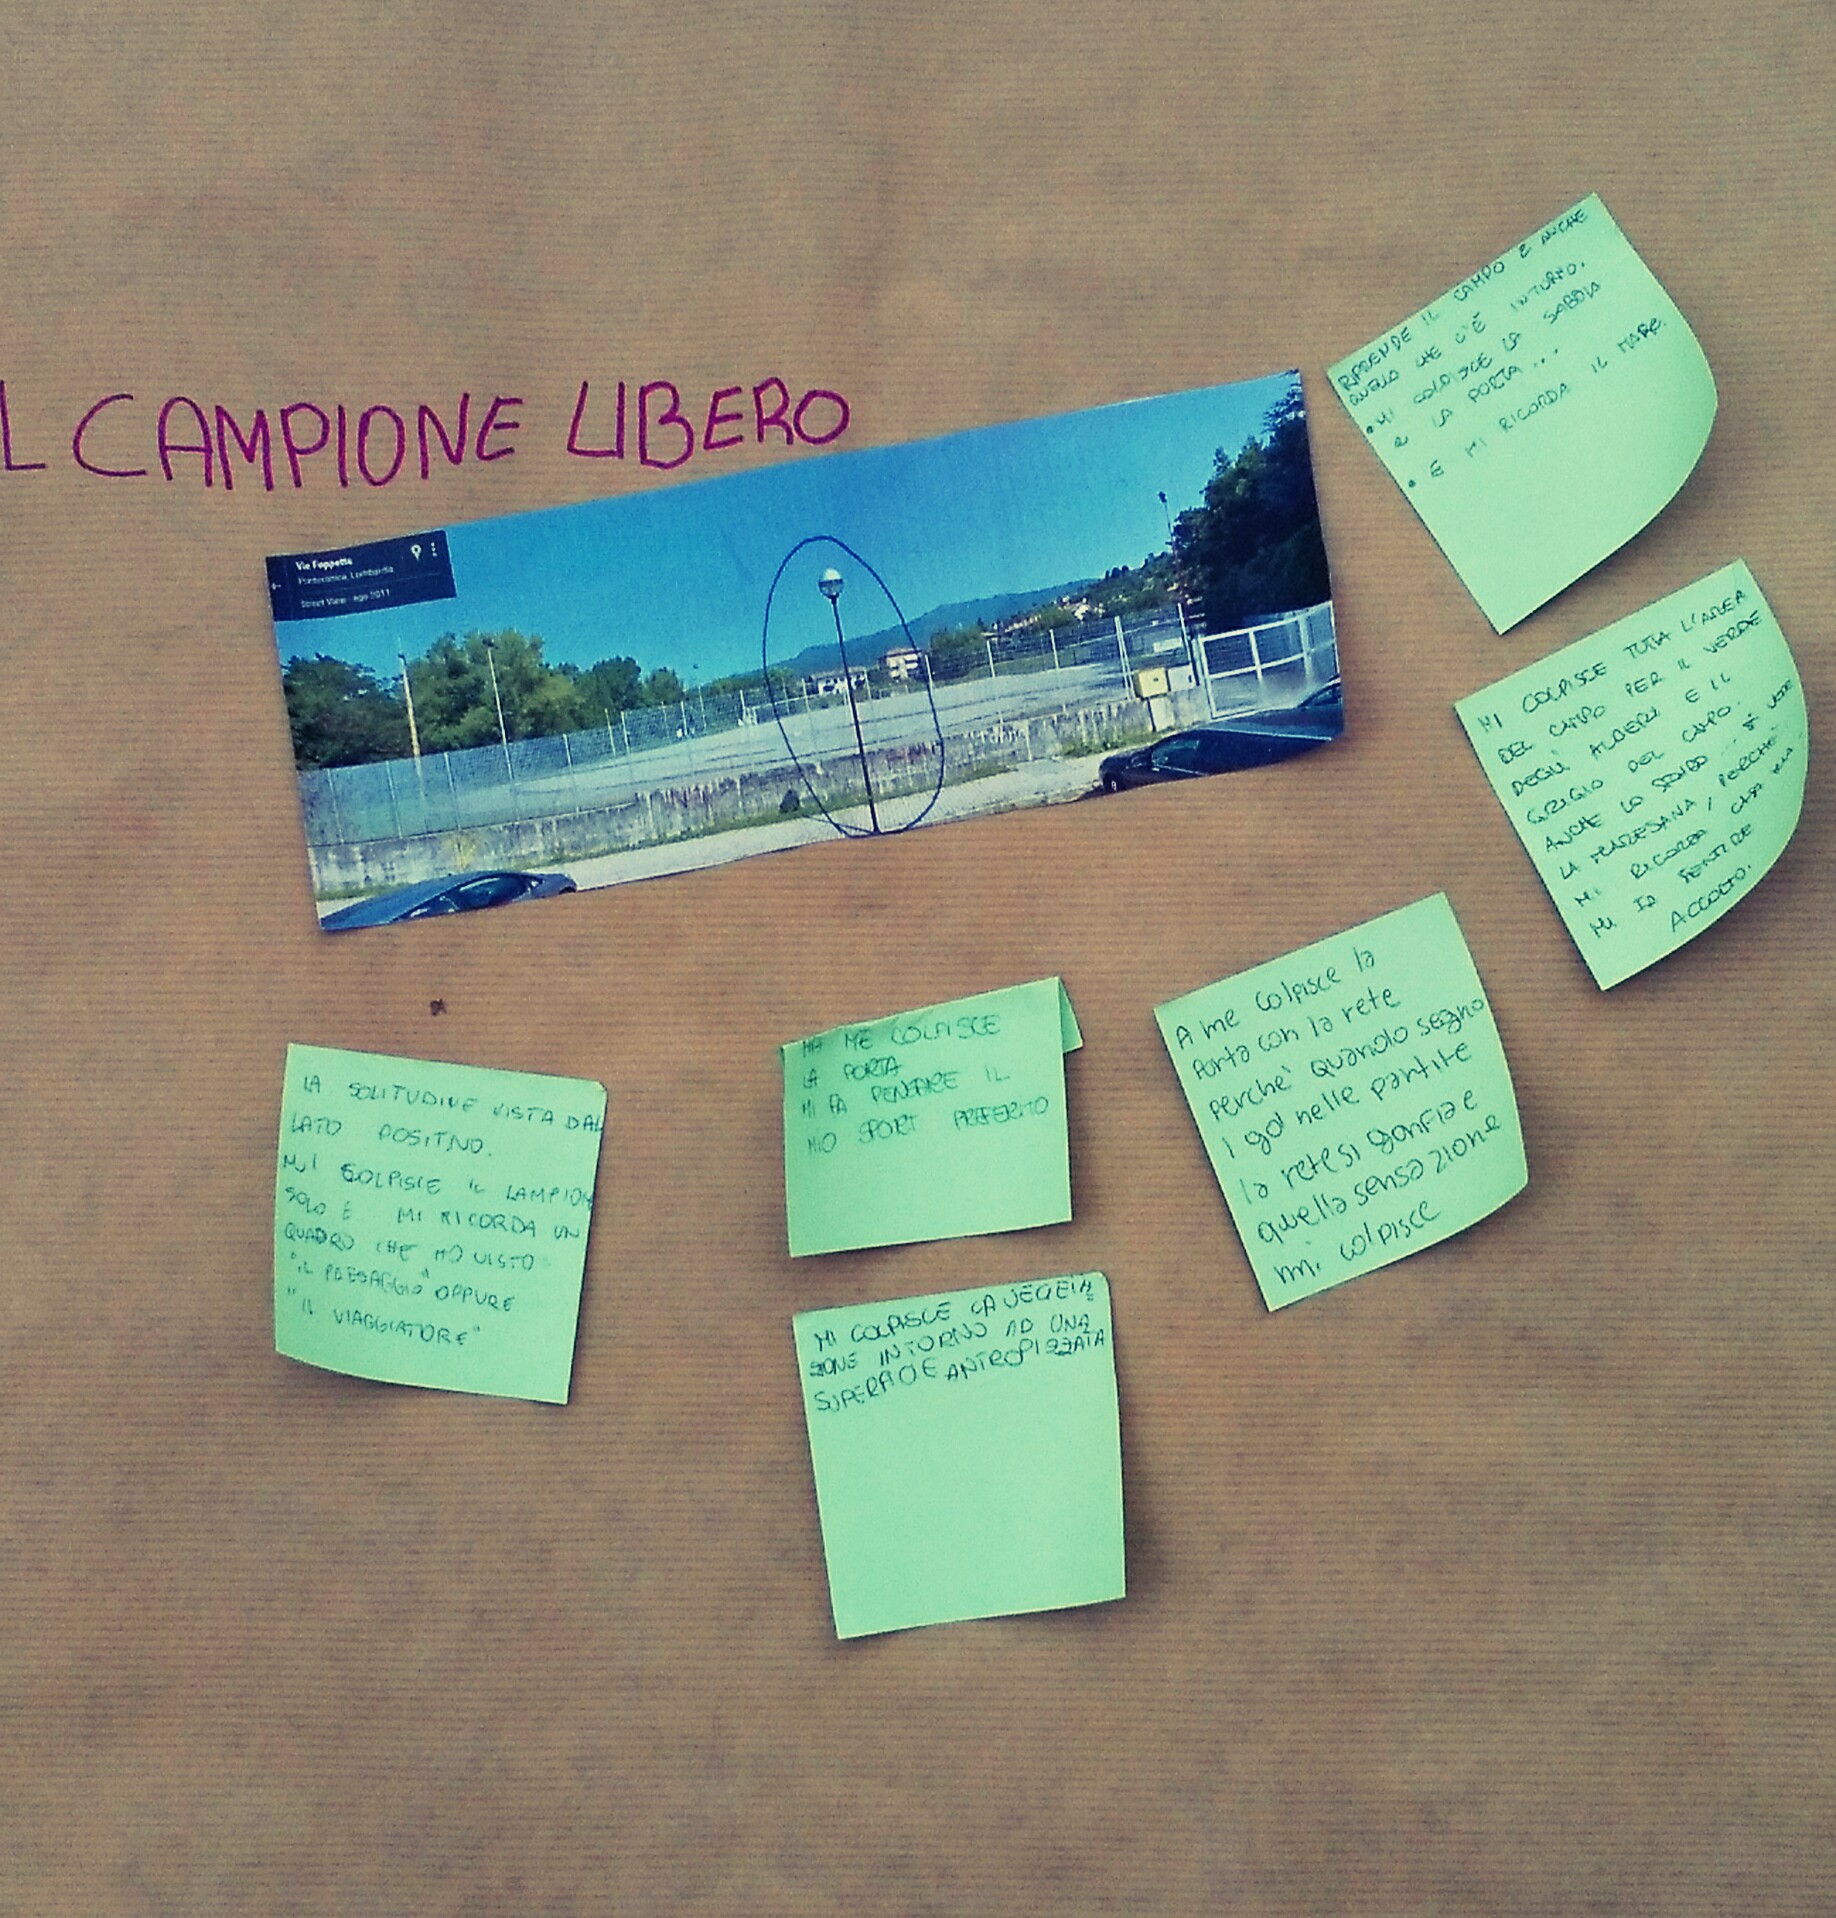 L CAMPIONE LIBERO
Via Foppette
Ponteranica, Lombardia
Street View - ago 2011
RIPRENDE IL CAMPO E ANCHE
QUELLO CHE C'È INTORNO.
• MI COLPISCE LA SABBIA
E LA PORTA...
• E MI RICORDA IL MARE.
MI COLPISCE TUTTA L'AREA
DEL CAMPO PER IL VERDE
DEGLI ALBERI E IL
GRIGIO DEL CAMPO.
ANCHE LO SFONDO... SI VEDE
LA MARESANA, PERCHÉ
MI RICORDA CASA MIA
MI FA SENTIRE
ACCOLTO.
A me colpisce la
porta con la rete
perchè quando segno
i gol nelle partite
la rete si gonfia e
quella sensazione
mi colpisce
HA ME COLPISCE
LA PORTA
MI FA PENSARE IL
MIO SPORT PREFERITO
LA SOLITUDINE VISTA DAL
LATO POSITIVO.
MI COLPISCE IL LAMPIONE
SOLO E MI RICORDA UN
QUADRO CHE HO VISTO
"IL PAESAGGIO" OPPURE
"IL VIAGGIATORE"
MI COLPISCE LA VEGETA
ZIONE INTORNO AD UNA
SUPERFICIE ANTROPIZZATA